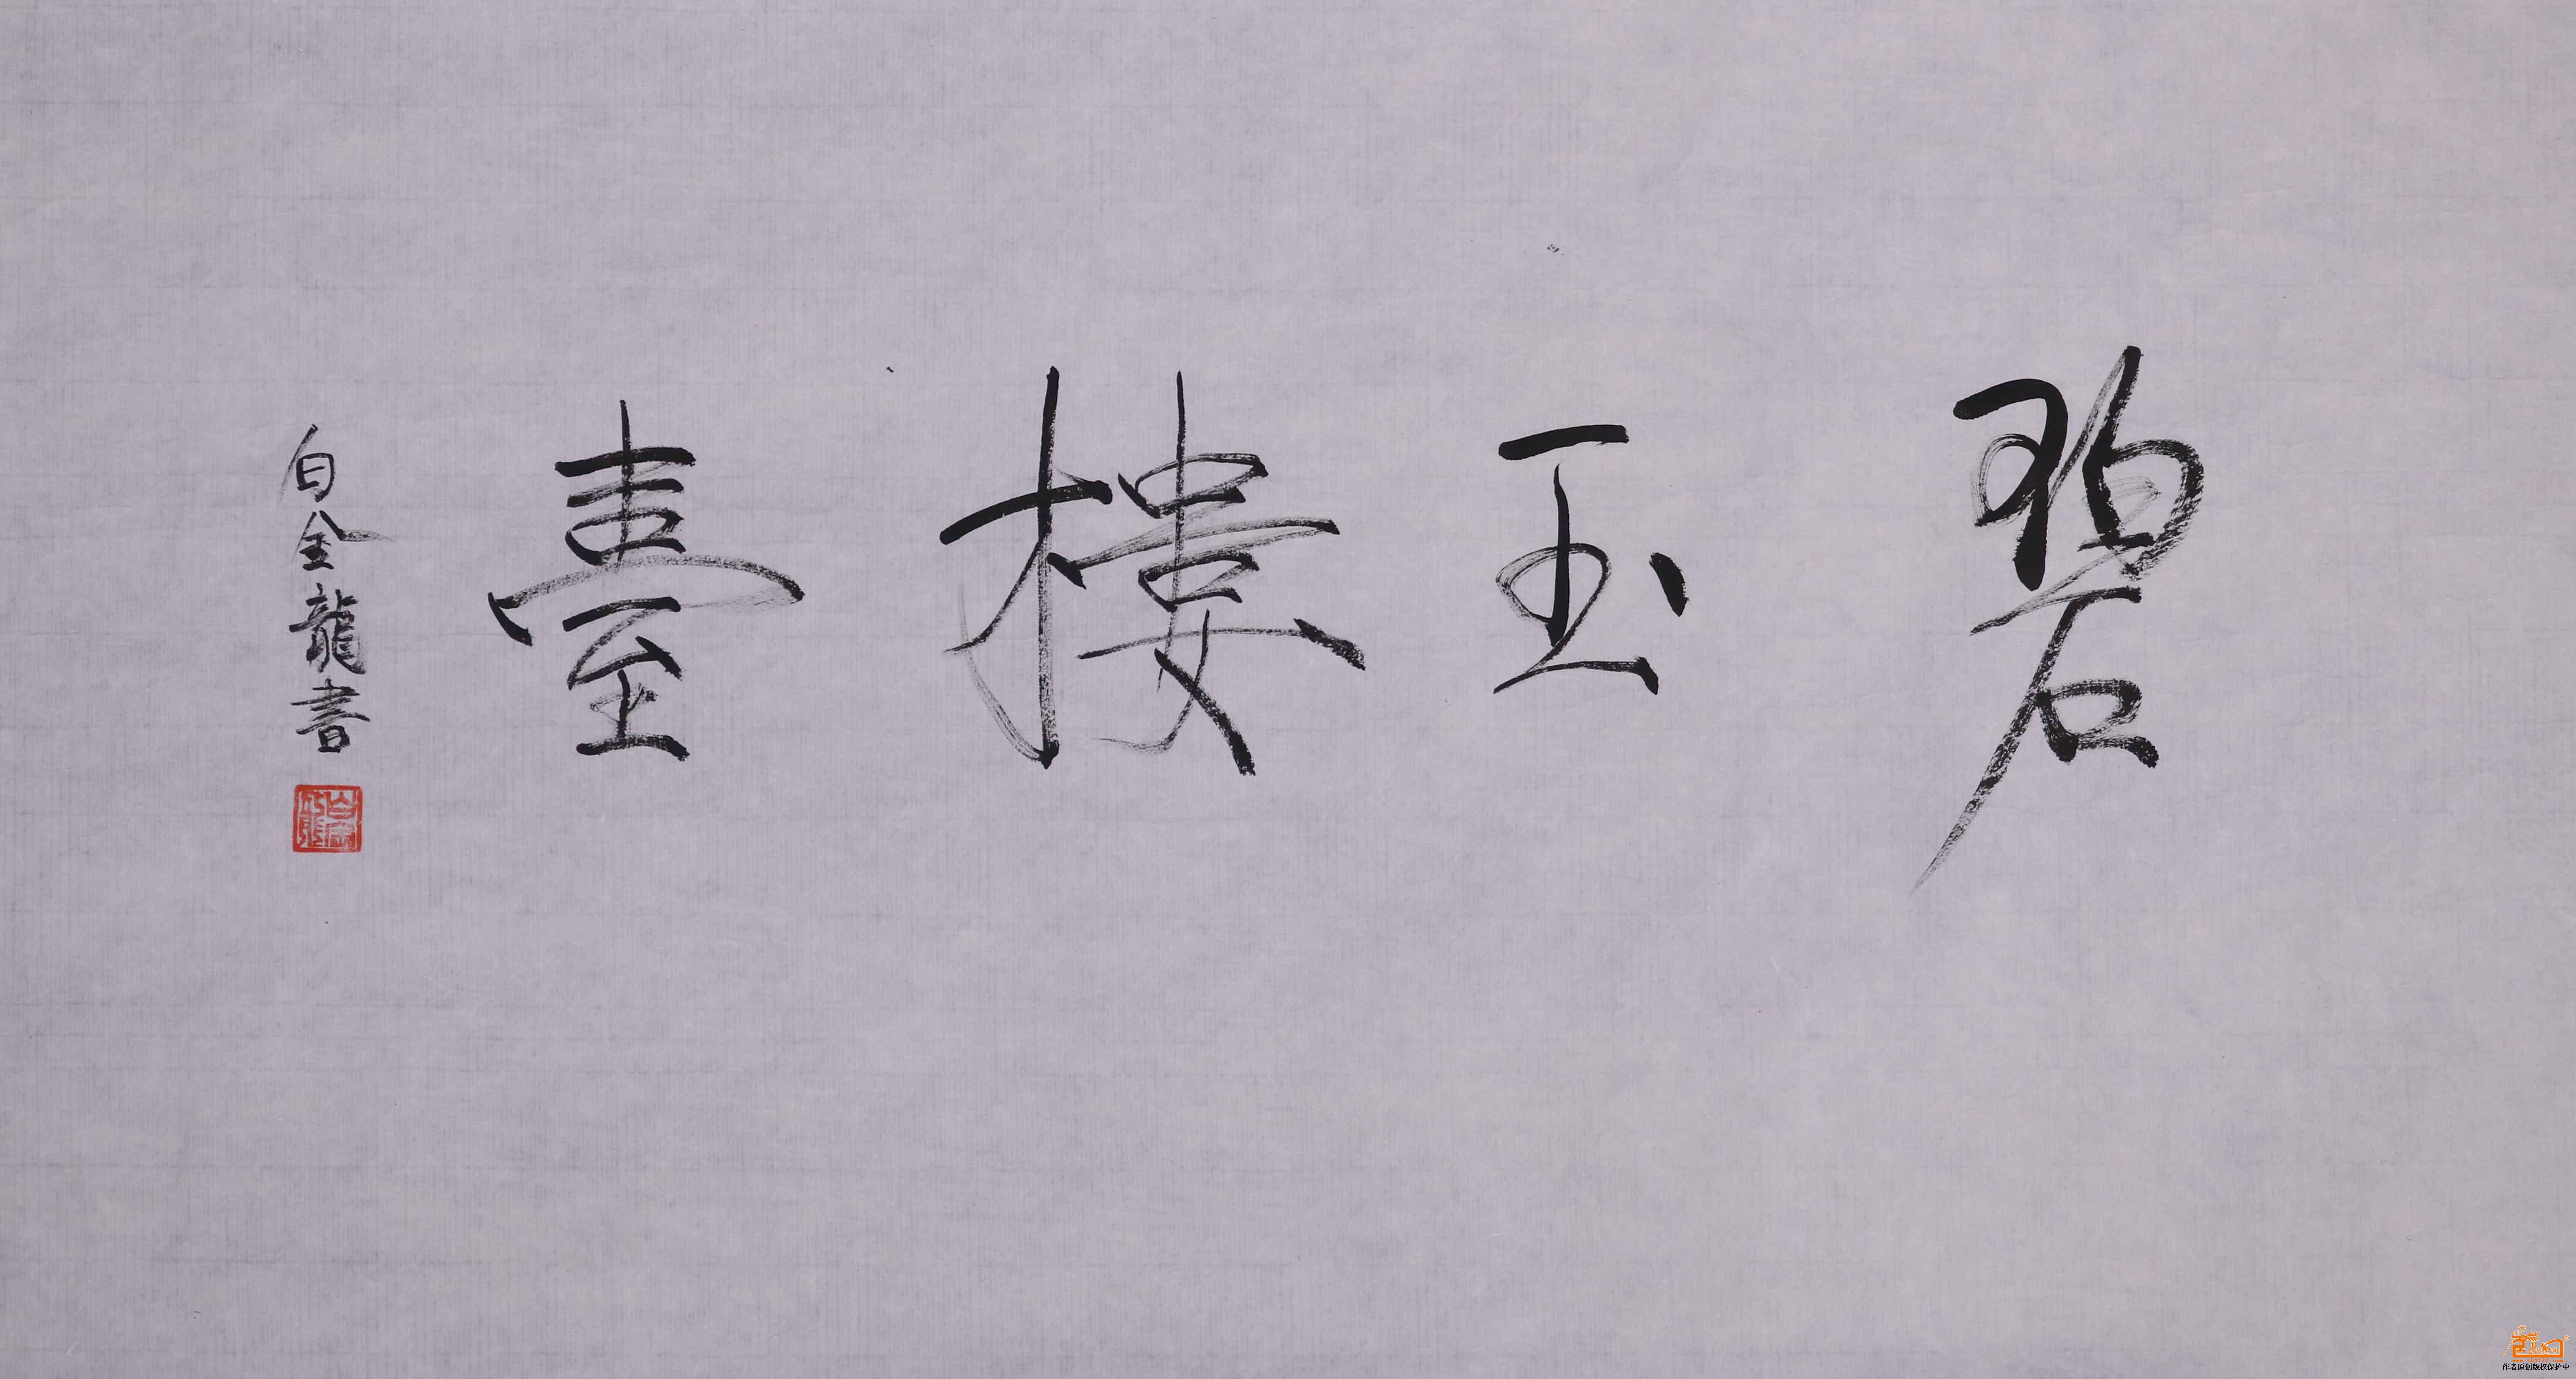 碧玉樓臺
白金龍書
白金龍
作者原创版权保护中